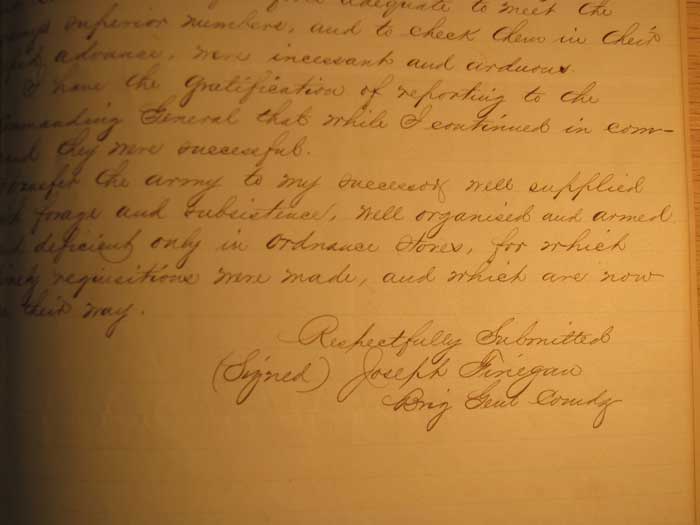 adequate to meet the
superior numbers, and to check them in their
advance, were incessant and arduous.
I have the gratification of reporting to the
Commanding General that while I continued in com-
mand they were successful.
transfer the army to my successor well supplied
forage and subsistence, well organised and armed
deficient only in Ordnance Stores, for which
requisitions were made, and which are now
their way.
Respectfully Submitted
(Signed) Joseph Finegan
Brig Genl Comdg